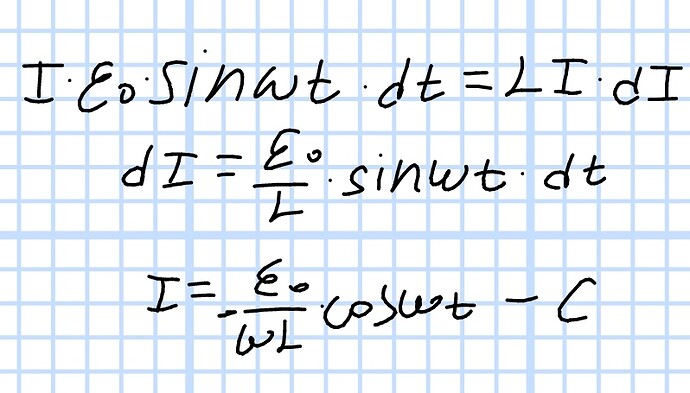 I·ε₀·sinωt·dt=LI·dI
dI=ε₀/L·sinωt·dt
I=-ε₀/ωL·cosωt-C